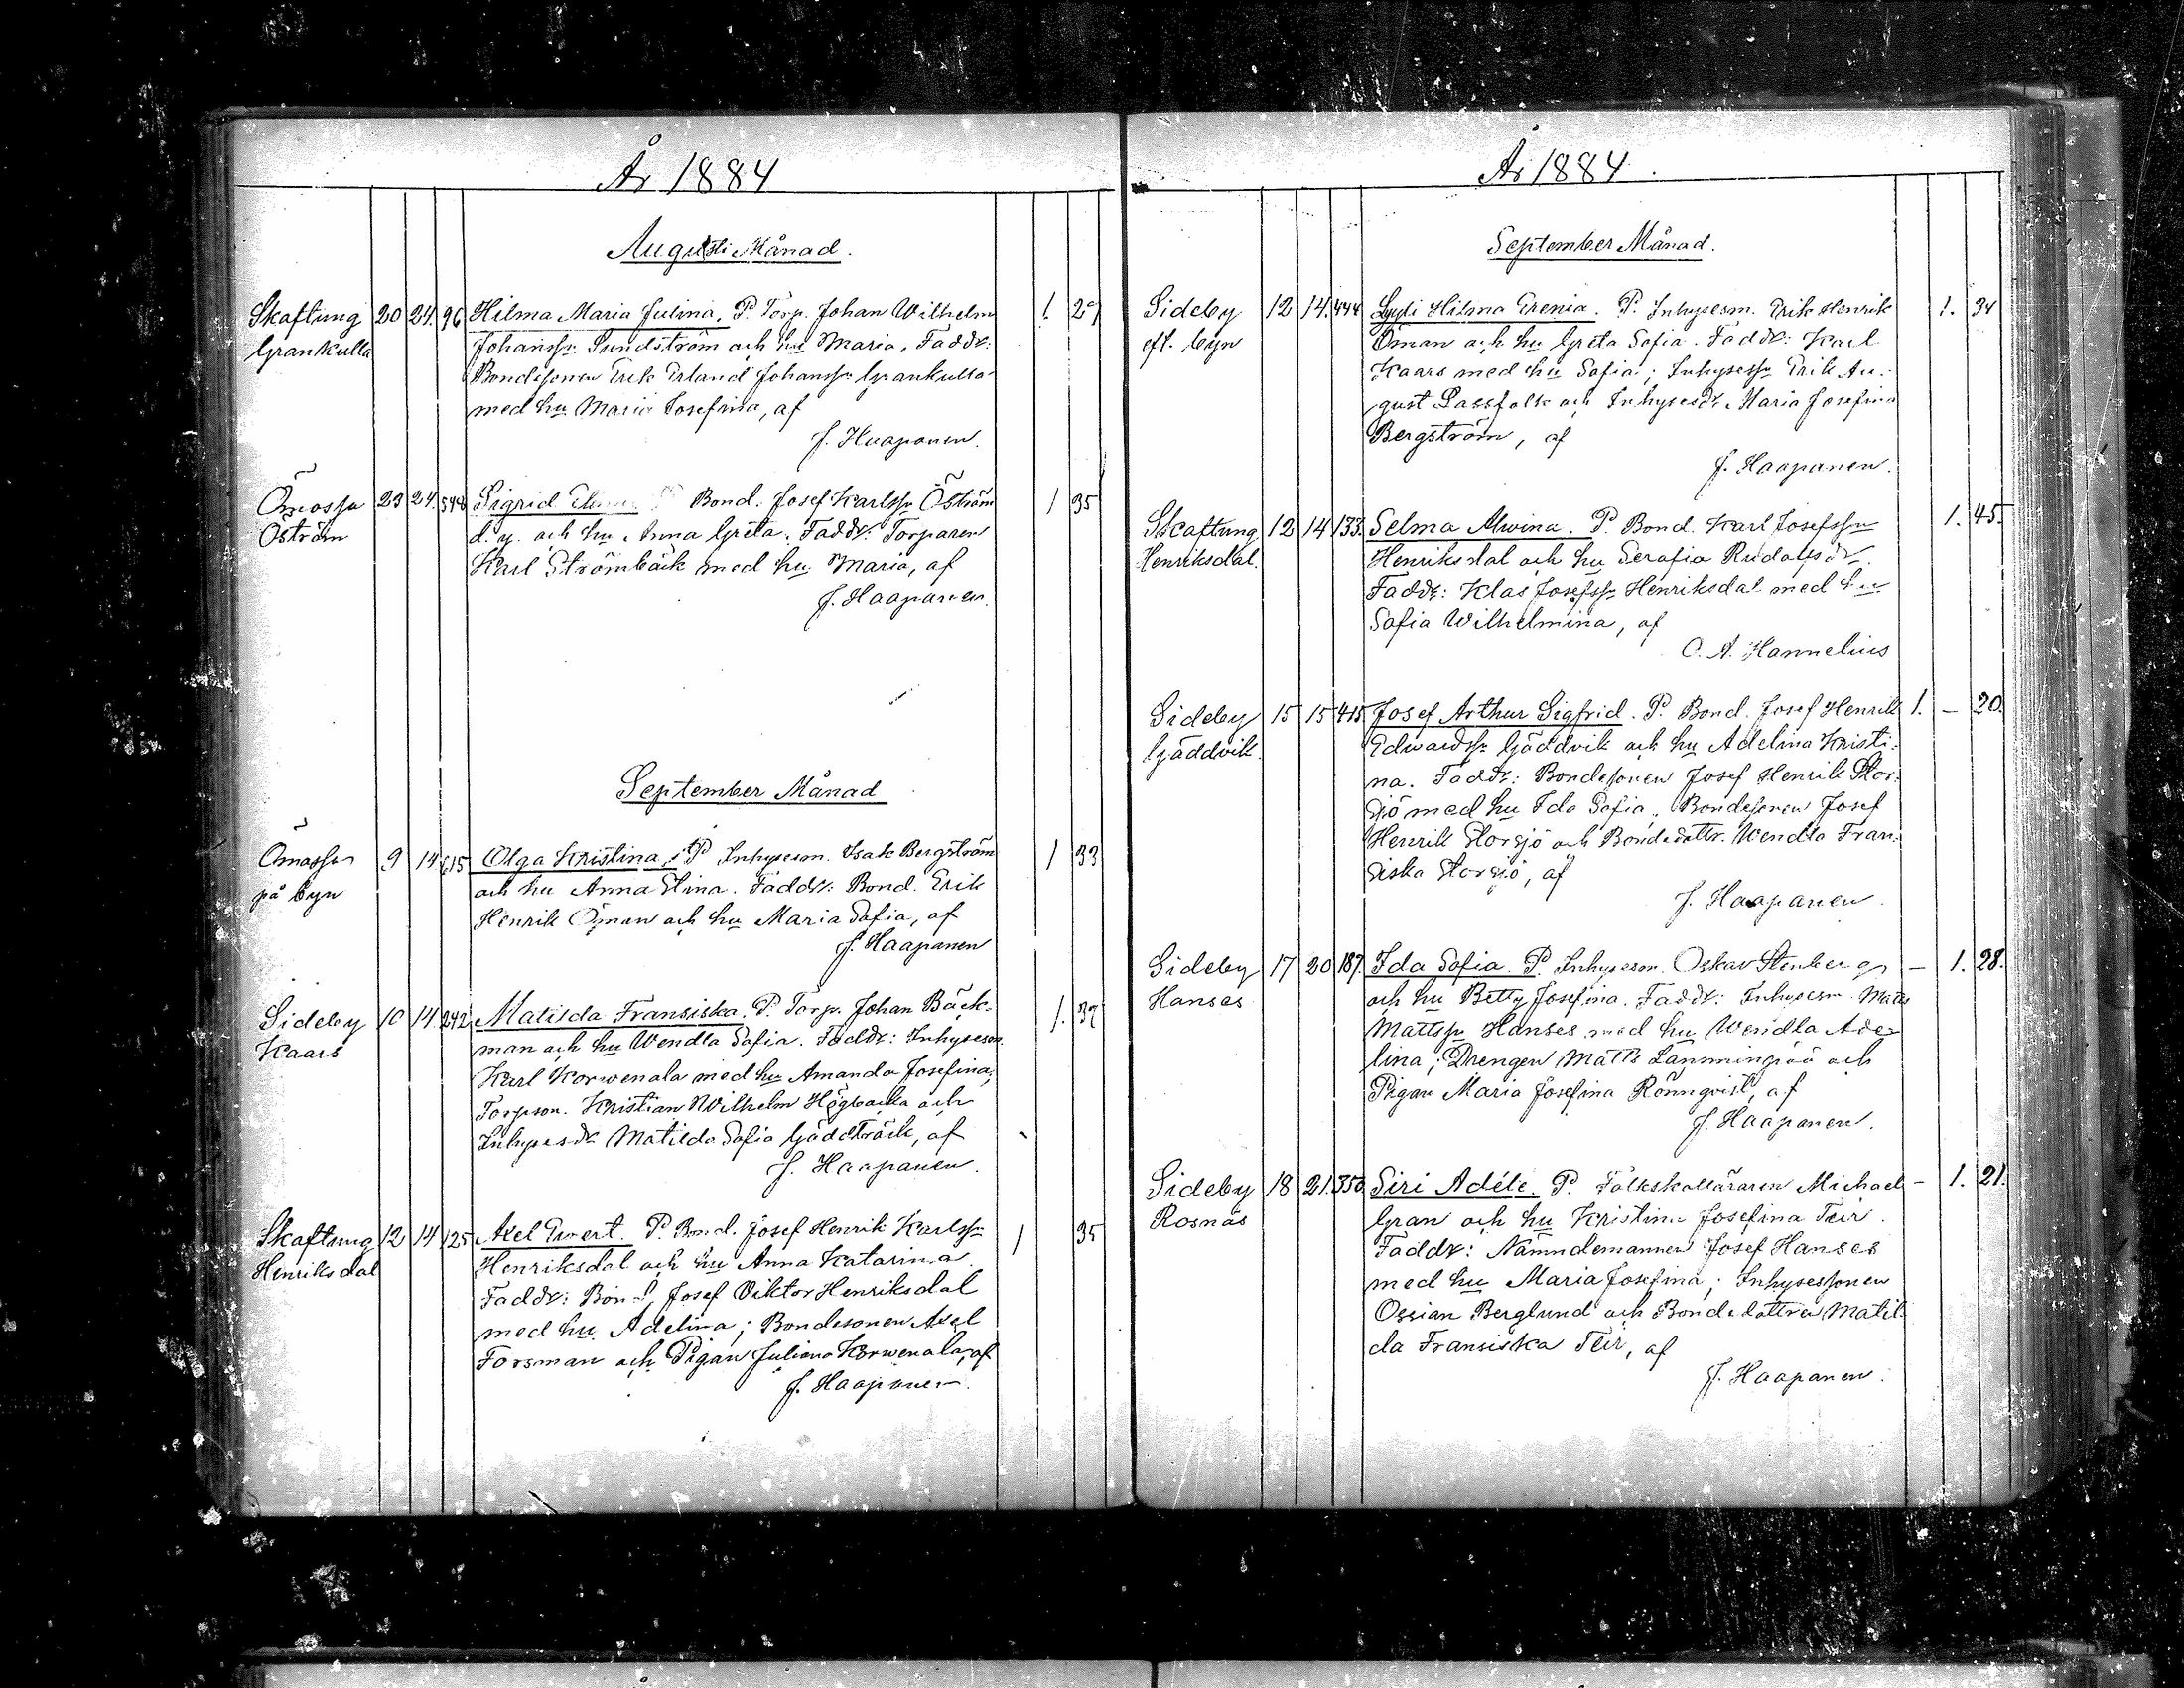 År 1884
Augusti Månad.
Skaftung 20 24. 96 Hilma Maria Julina. P. Torp. Johan Wilhelm 1. 29
Grankulla Johanss. Sundström och hu Maria. Faddr:
Bondesonen Erik Erland Johanss. Grankulla
med hu Maria Josefina, af
J. Haapanen.
Ömossa 23 24. 548 Sigrid P Bond. Josef Karlss. Öström 1 35
Öström d. y. och hu Anna Greta. Faddr: Torparen
Karl Strömbäck med hu Maria, af
J. Haapanen.
September Månad
Ömossa 9 14 Olga Kristina. P Inhysesm. Isak Bergström 1 33
på byn och hu Anna Elina. Faddr: Bond. Erik
Henrik Öman och hu Maria Sofia, af
J. Haapanen
Sideby 10 14 242 Matilda Fransiska. P. Torp. Johan Bäck- 1.
Kaars man och hu Wendla Sofia. Faddr: Inhyseson
Karl Korwenala med hu Amanda Josefina;
Torpson. Kristian Wilhelm Högbacka och
Inhysesdr Matilda Sofia Gäddträsk, af
J. Haapanen.
Skaftung 12 14 125 Axel Evert. P. Bond. Josef Henrik Karlss. 1 35
Henriksdal Henriksdal och hu Anna Katarina
Faddr: Bond. Josef Viktor Henriksdal
med hu Adelina; Bondesonen Axel
Forsman och Pigan Juliana Korwenala, af
J. Haapanen.
År 1884.
September Månad.
Sideby 12 14. 444 Lyli Hilma Erenia. P. Inhysesm. Erik Henrik 1. 34
eft. byn Öman och hu Greta Sofia. Faddr: Karl
Kaars med hu Sofia; Inhysess. Erik Au-
gust Lassfolk och Inhysesdr. Maria Josefina
Bergström, af
J. Haapanen.
Skaftung 12 14 133. Selma Alwina. P. Bond. Karl Josefsson 1. 45.
Henriksdal. Henriksdal och hu Serafia Rudolfsdr.
Faddr: Klas Josefss. Henriksdal med hu
Sofia Wilhelmina, af
C. A. Hannelius
Sideby 15 15 415 Josef Arthur Sigfrid. P. Bond. Josef Henrik 1. – 20.
Gäddvik. Edwardss. Gäddvik och hu Adelina Kristi-
na. Faddr: Bondesonen Josef Henrik Stor-
sjö med hu Ida Sofia, Bondesonen Josef
Henrik Storsjö och Bondedottr. Wendla Fran-
siska Storsjö, af
J. Haapanen.
Sideby 17 20 187. Ida Sofia. P. Inhysesm. Oskar Stenberg – 1. 28.
Hanses och hu Betty Josefina. Faddr: Inhysesm Matts
Mattss. Hanses med hu Wendla Ade-
lina; Drengen Matts Lamminpää och
Pigan Maria Josefina Rönnqvist, af
J. Haapanen.
Sideby 18 21. 350 Siri Adéle. P. Folkskolläraren Michael – 1. 21.
Rosnäs Gran och hu Kristina Josefina Teir.
Faddr: Nämndemannen Josef Hanses
med hu Maria Josefina; Inhysessonen
Ossian Berglund och Bondedottren Matil-
da Fransiska Teir, af
J. Haapanen.